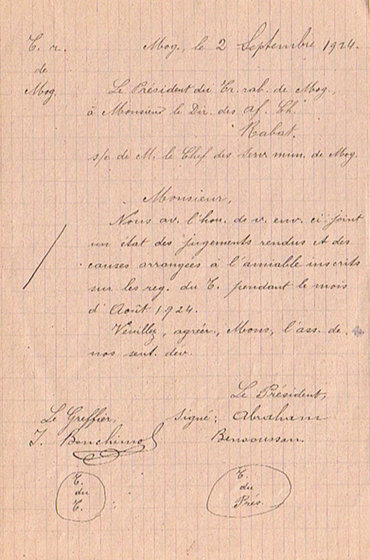 T. r.
de
Mog.
Mog., le 2 Septembre 1924.
Le Président du Tr. rab. de Mog.,
à Monsieur le Dir. des Af. Ch.
Rabat.
s/c de M. le Chef des Serv. mun. de Mog.
Monsieur,
Nous av. l'hon. de v. env. ci joint
un état des jugements rendus et des
causes arrangées à l'amiable inscrits
sur les reg. du T. pendant le mois
d'Août 1924.
Veuillez, agréer, Mons, l'ass. de
nos sent. dév.
Le Président,
Le Greffier, Signé: Abraham
J. Benchimol Bensoussan.
T.
du
T.
T.
du
Prés.